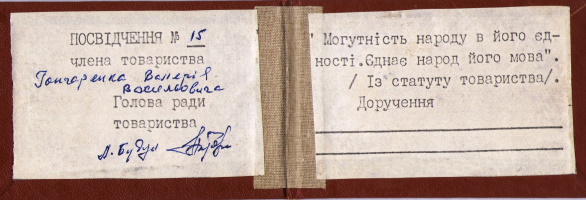 ПОСВІДЧЕННЯ № 15
члена товариства
Гончаренка Валерія
Васильовича
Голова ради
товариства
" Могутність народу в його єд-
ності.Єднає народ його мова".
/ Із статуту товариства/.
Доручення